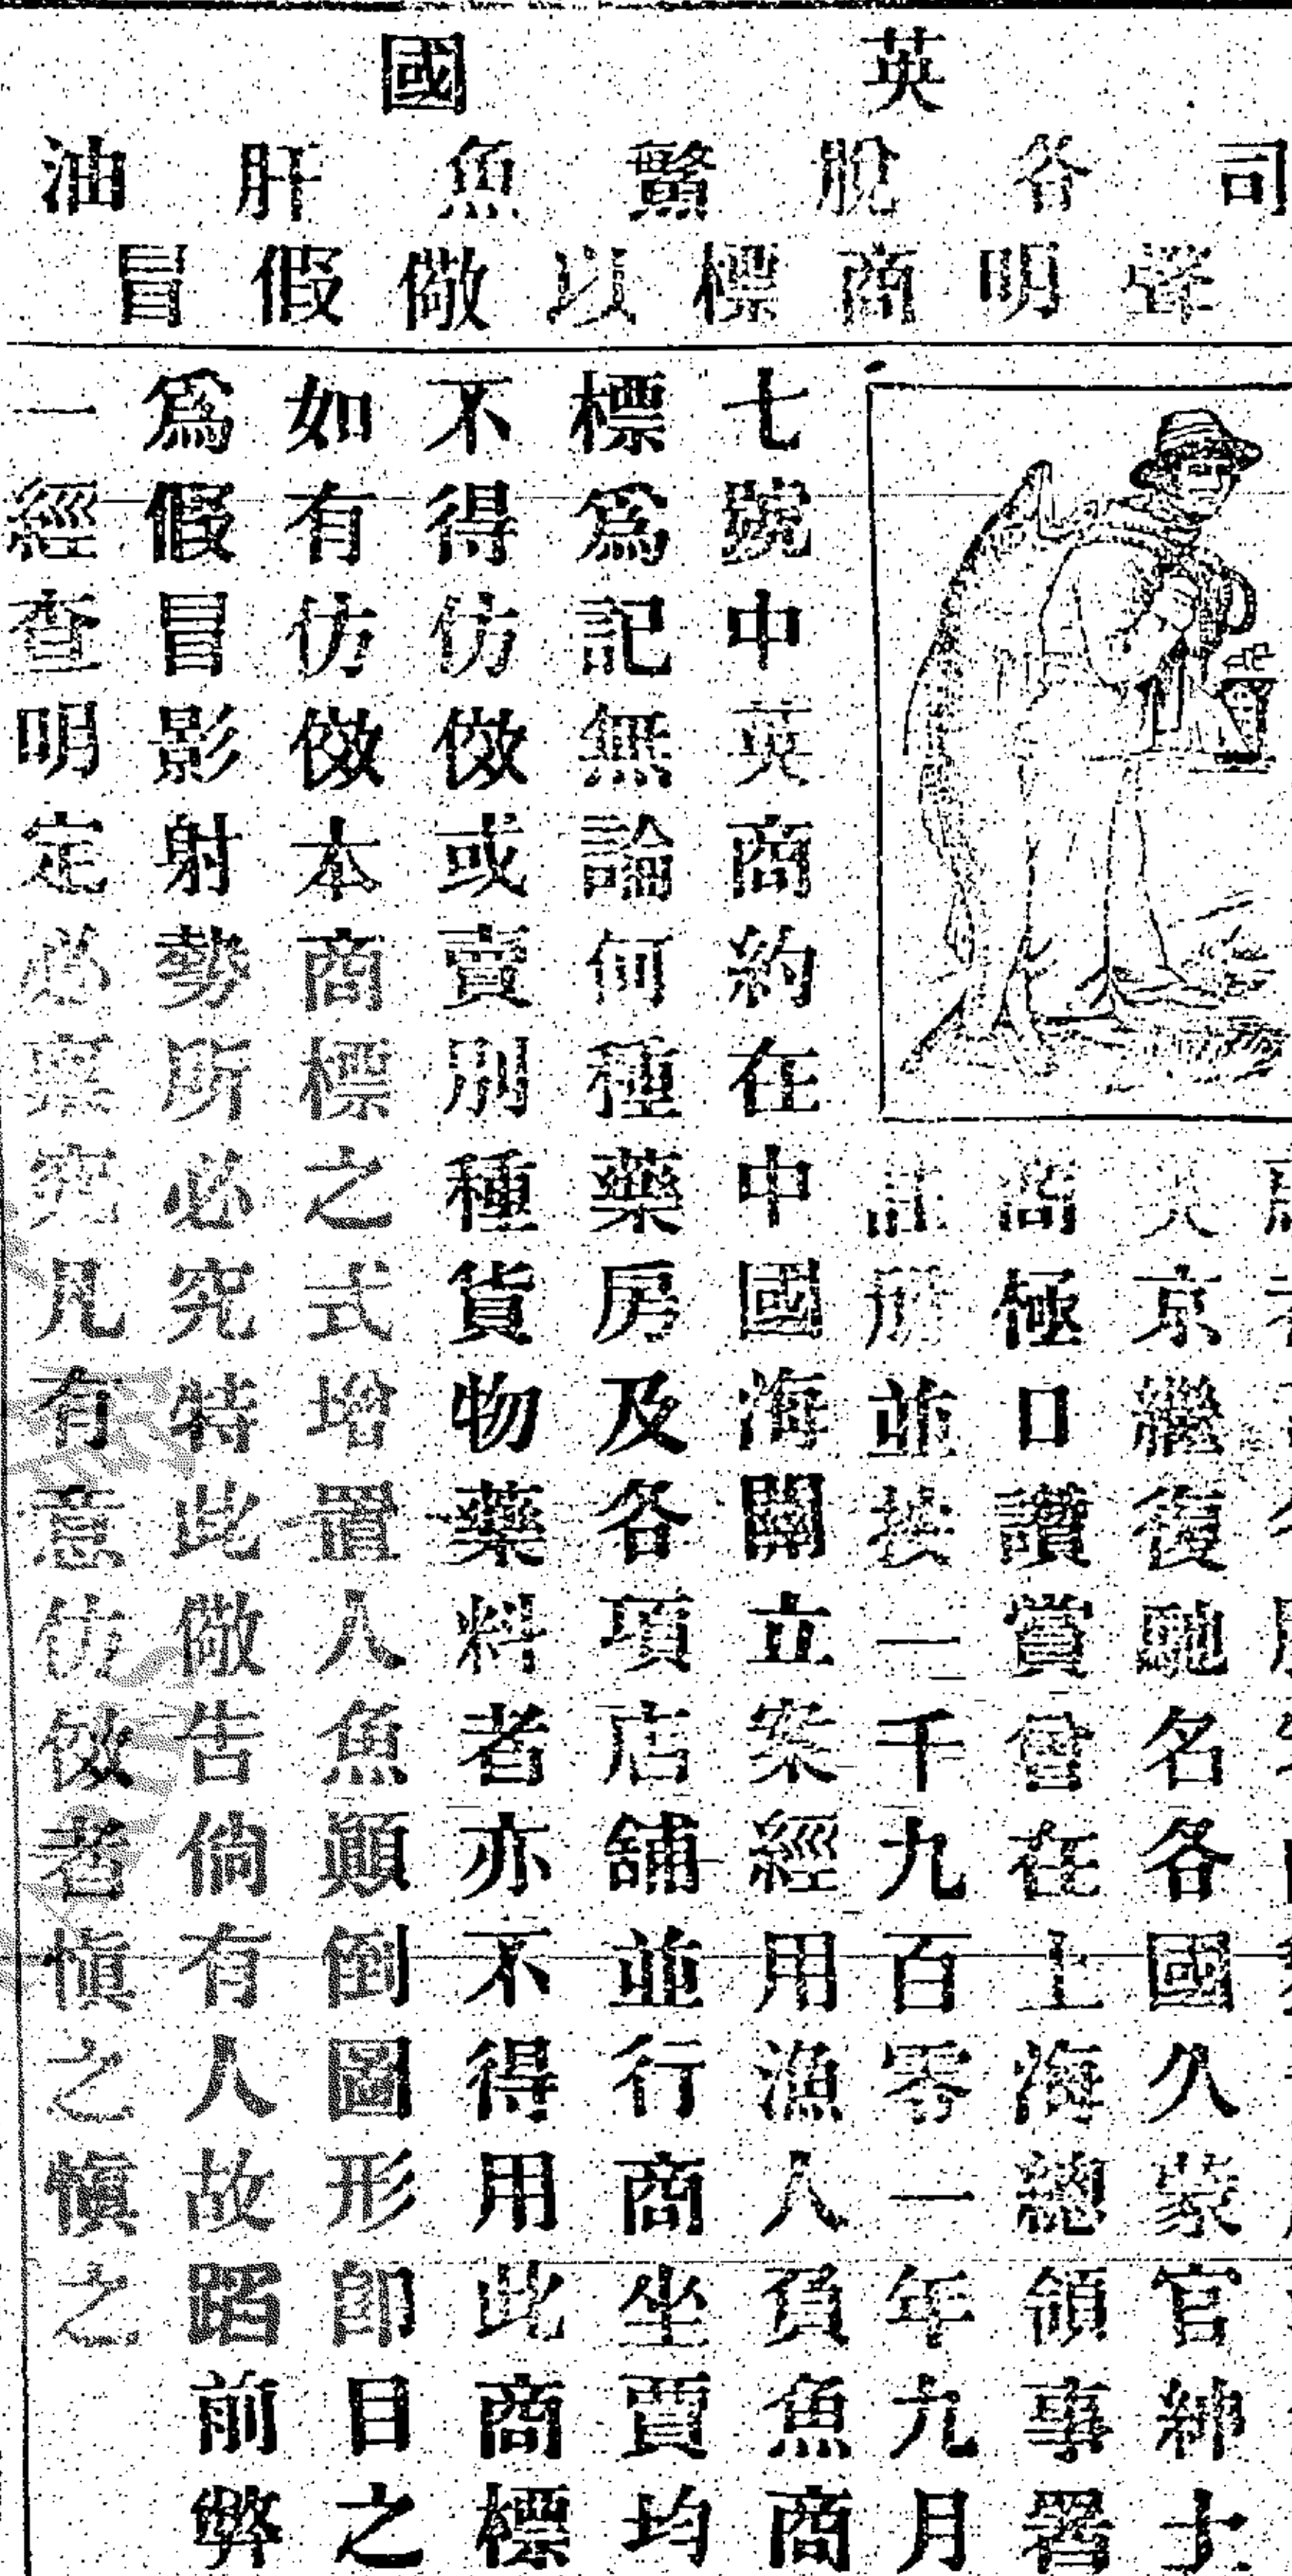 英國
司各脫鱉魚肝油
聲明商標以儆假冒
英京繼復馳名各國久蒙官紳士
商極口讚賞曾在上海總領事署
註册並於一千九百零一年九月
七號中英商約在中國海關立案經用漁人負魚商
標爲記無論何種藥房及各項店舖並行商坐賈均
不得仿傚或賣別種貨物藥料者亦不得用此商標
如有仿傚本商標之式增置人魚顛倒圖形卽目之
爲假冒影射勢所必究特此儆告倘有人故蹈前弊
一經查明定必稟究凡有意仿傚者愼之愼之